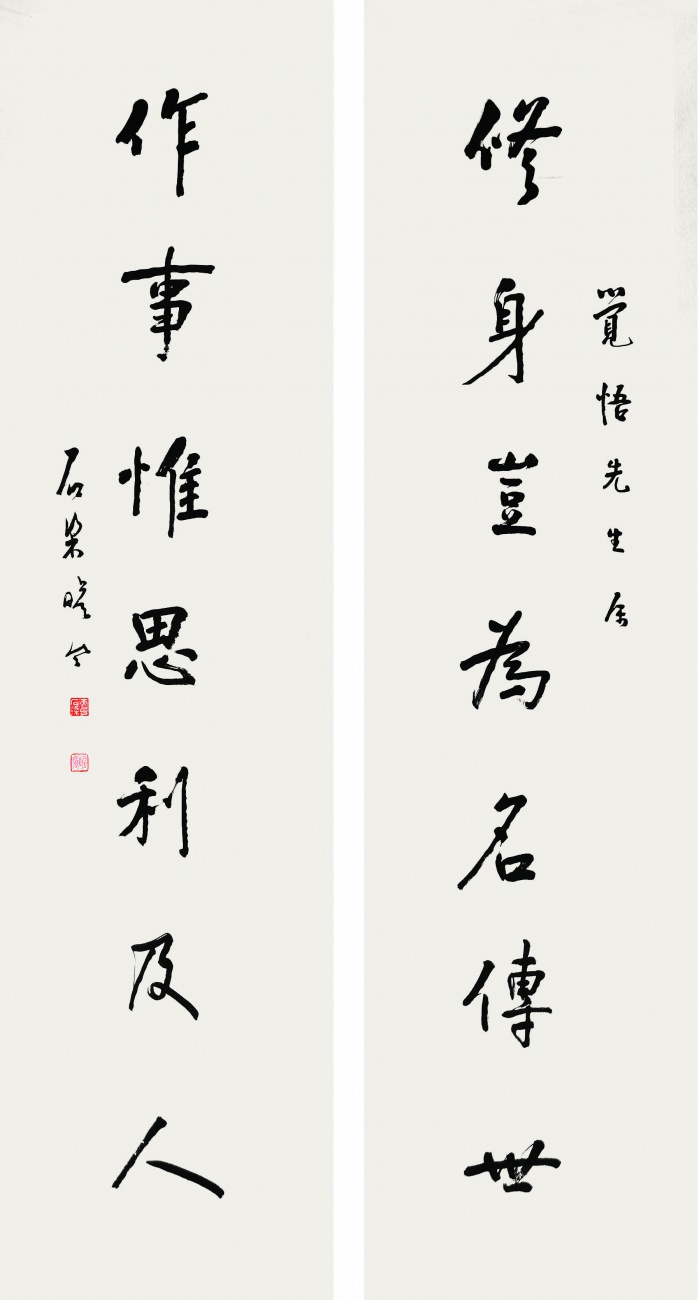 覺悟先生属
修身豈為名傳世
作事惟思利及人
石